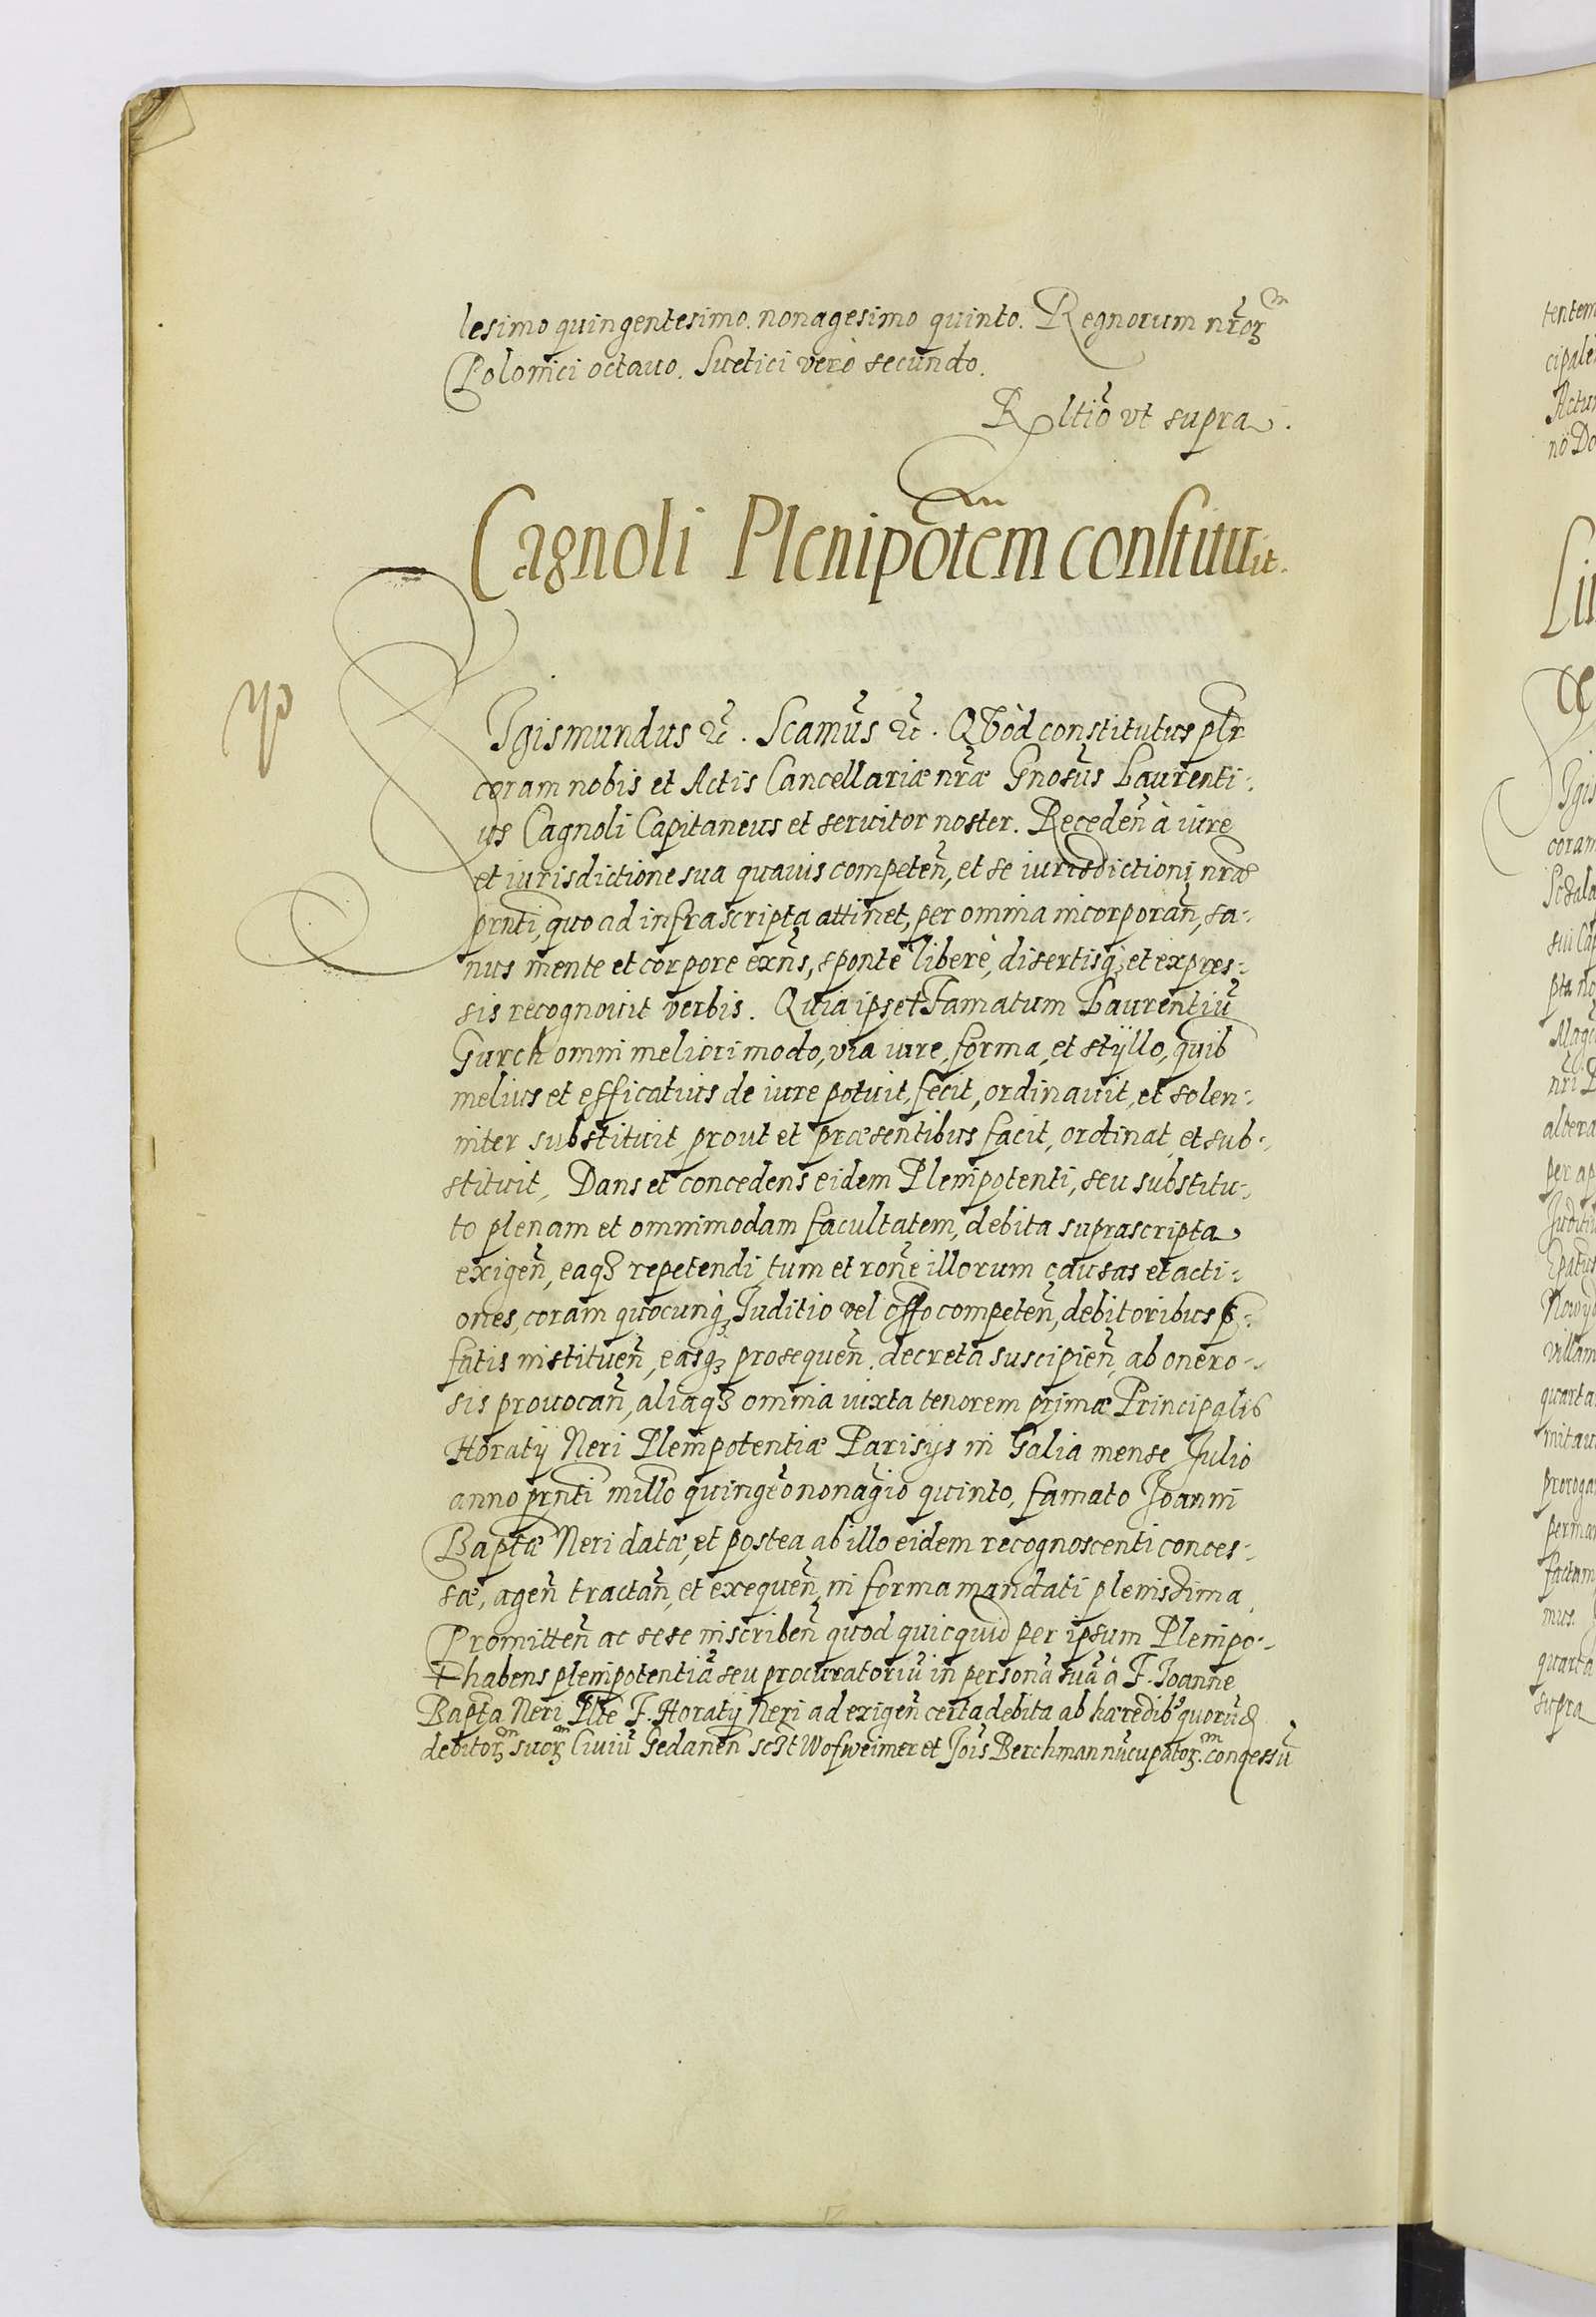 lesimo quingentesimo. nonagesimo quinto. Regnorum nr̃orꝫ
Polonici octauo. Suetici verò secundo.
Rltio vt supra.
Cagnoli Plenipõtem constituit.
Sigismundus ꝛc̃. Scamũs ꝛc̃. QVòd constitutus plr
coram nobis et Actis Cancellariæ nr̃æ Gnosũs Laurenti:
us Cagnoli Capitaneus et seruitor noster. Recedeñ à iure
et iurisdictione sua quauis competeñ, et se iurisdictioni nr̃æ
prnti, quo ad infrascripta attinet, per omnia incorporañ, sa:
nus mente et corpore exñs, sponte liberè, disertisqꝫ et expres:
sis recognouit verbis. Quia ipse ┼ Famatum Laurentiũ
Gurch omni meliori modo, via iure, forma, et stÿllo, quib
melius et efficatius de iure potuit, fecit, ordinauit, et solen:
niter substituit, prout et præsentibus facit, ordinat, et sub:
stituit, Dans et concedens eidem Plenipotenti, seu substitu:
to plenam et omnimodam facultatem, debita suprascripta
exigeñ, eaqꝫ repetendi, tum et roñe illorum causas et acti:
ones, coram quocunqꝫ Juditio vel offo competeñ, debitoribus p:
fatis institueñ, easqꝫ prosequeñ, decreta suscipieñ, ab onero:
sis prouocañ, aliaqꝫ omnia iuxta tenorem primæ Principalis
Horatij Neri Plenipotentiæ Parisijs in Galia mense Julio
anno prnti millo quingẽo nonagio quinto, famato Joanni
Baptæ Neri datæ, et postea ab illo eidem recognoscenti conces:
sæ, ageñ tractañ, et exequeñ, in forma mandati plenissima,
Promitteñ ac sese inscribeñ quod quicquid per ipsum Plenipo:
┼ habens plenipotentiã seu procuratoriũ in personã suã à F. Joanne
Bapta Neri Plte F. Horatij Neri ad exigeñ certa debita ab hæredib9 quorũd
debitorꝫ suorꝫ Ciuiũ Gedaneñ sct Wofweimer et Jois Berchman nũcupatorꝫ. concessũ